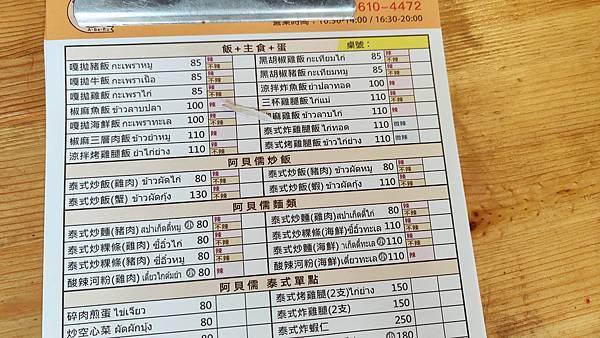 610-4472
營業時間：10:30-14:00 / 16:30-20:00
飯+主食+蛋
桌號：
嘎拋豬飯 กะเพราหมู 85 辣 不辣
嘎拋牛飯 กะเพราเนื้อ 85 辣 不辣
嘎拋雞飯 กะเพราไก่ 85 辣 不辣
椒麻魚飯 ข้าวลาบปลา 100 辣
嘎拋海鮮飯 กะเพราทะเล 100 辣 不辣
椒麻三層肉飯 ข้าวยำหมู 110 辣 不辣
涼拌烤雞腿飯 ยำไก่ย่าง 110 辣 不辣
黑胡椒雞飯 กะเทียมไก่ 85 辣 不辣
黑胡椒豬飯 กะเทียมหมู 85 辣 不辣
涼拌炸魚飯 ยำปลาทอด 100 辣 不辣
三杯雞腿飯 ไก่แม่ 110 辣 不辣
麻雞飯 ข้าวลาบไก่ 110 辣 不辣
泰式炸雞腿飯 ไก่ทอด 110 微辣
泰式烤雞腿飯 ไก่ย่าง 110 微辣
阿貝儒炒飯
泰式炒飯(雞肉) ข้าวผัดไก่ 80 辣 不辣
泰式炒飯(蟹) ข้าวผัดกุ้ง 130 辣 不辣
泰式炒飯(豬肉) ข้าวผัดหมู 80 辣 不辣
泰式炒飯(蝦) ข้าวผัดกุ้ง 110 辣 不辣
阿貝儒麵類
泰式炒麵(豬肉) สปาเก็ตตี้หมู 80 辣 不辣
泰式炒粿條(雞肉) ซีอิ๊วไก่ 80 辣 不辣
泰式炒粿條(豬肉) ซีอิ๊วหมู 80 辣 不辣
酸辣河粉(雞肉) เตี๋ยวไก่ต้มยำ 80 辣
泰式炒麵(雞肉) สปาเก็ตตี้ไก่ 80 辣 不辣
泰式炒粿條(海鮮) ซีอิ๊วทะเล 110 辣 不辣
泰式炒麵(海鮮) าเก็ตตี้ทะเล 110 辣 不辣
酸辣河粉(海鮮) เตี๋ยวทะเล 110 辣
阿貝儒 泰式單點
碎肉煎蛋 ไข่เจียว 80
炒空心菜 ผัดผักบุ้ง 80
泰式烤雞腿(2支) ไก่ย่าง 150
泰式炸雞腿(2支) 150
泰式炸蝦仁 250
180